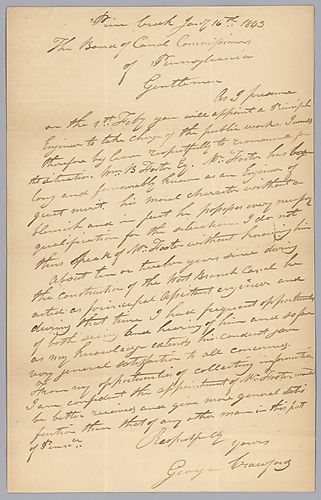 Pine Creek Jany 16th 1843
The Board of Canal Commissioners
of Pennsylvania
Gentlemen
As I presume
on the 1st Feby you will appoint a Principal
Engineer to take charge of the public works. I would
therefore beg leave respectfully to recommend for
the situation Wm B Foster Esq. Mr Foster has been
long and favourably known as an Engineer of
great merit, his moral character without a
blemish and in fact he possesses every necessary
qualification for the selection. I do not
thus speak of Mr Foster without knowing him
About ten or twelve years since during
the construction of the West Branch Canal he
acted as principal Assistant engineer and
during that time I had frequent opportunities
of both seeing and hearing of him and so far
as my knowledge extends his conduct gave
very general satisfaction to all concerned.
From my opportunities of collecting information
I am confident the appointment of Mr Foster would
be better received and give more general satis
faction than that of any other man in this part
of Penna
Respectfully
yours
George Crawford